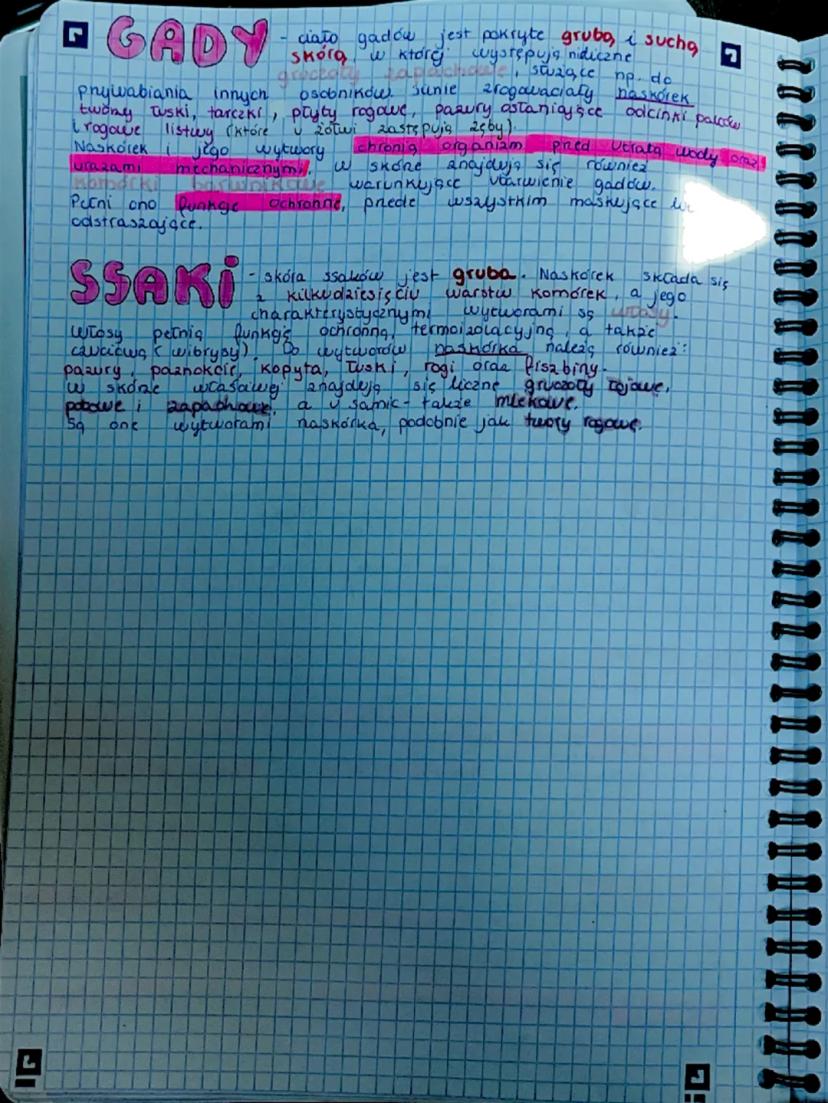 GADY - ciało gadów jest pokryte grubą i suchą
skórą w której występują nieliczne
gruczoły zapachowe, służące np. do
przywabiania innych osobników. Silnie zrogowaciały naskórek
tworzy łuski, tarczki, płyty rogowe, pazury osłaniające odcinki palców
i rogowe listwy (które u żółwi zastępują zęby).
Naskórek i jego wytwory chronią organizm przed utratą wody oraz
urazami mechanicznymi. W skórze znajdują się również
komórki barwnikowe warunkujące ubarwienie gadów.
Pełni ono funkcje ochronne, przede wszystkim maskujące lub
odstraszające.
SSAKI - skóra ssaków jest gruba. Naskórek składa się
z kilkudziesięciu warstw komórek, a jego
charakterystycznymi wytworami są włosy.
Włosy pełnią funkcję ochronną, termoizolacyjną, a także
czuciową (wibrysy). Do wytworów naskórka należą również:
pazury, paznokcie, kopyta, łuski, rogi oraz fiszbiny.
W skórze właściwej znajdują się liczne gruczoły łojowe,
potowe i zapachowe, a u samic - także mlekowe.
Są one wytworami naskórka, podobnie jak twory rogowe.